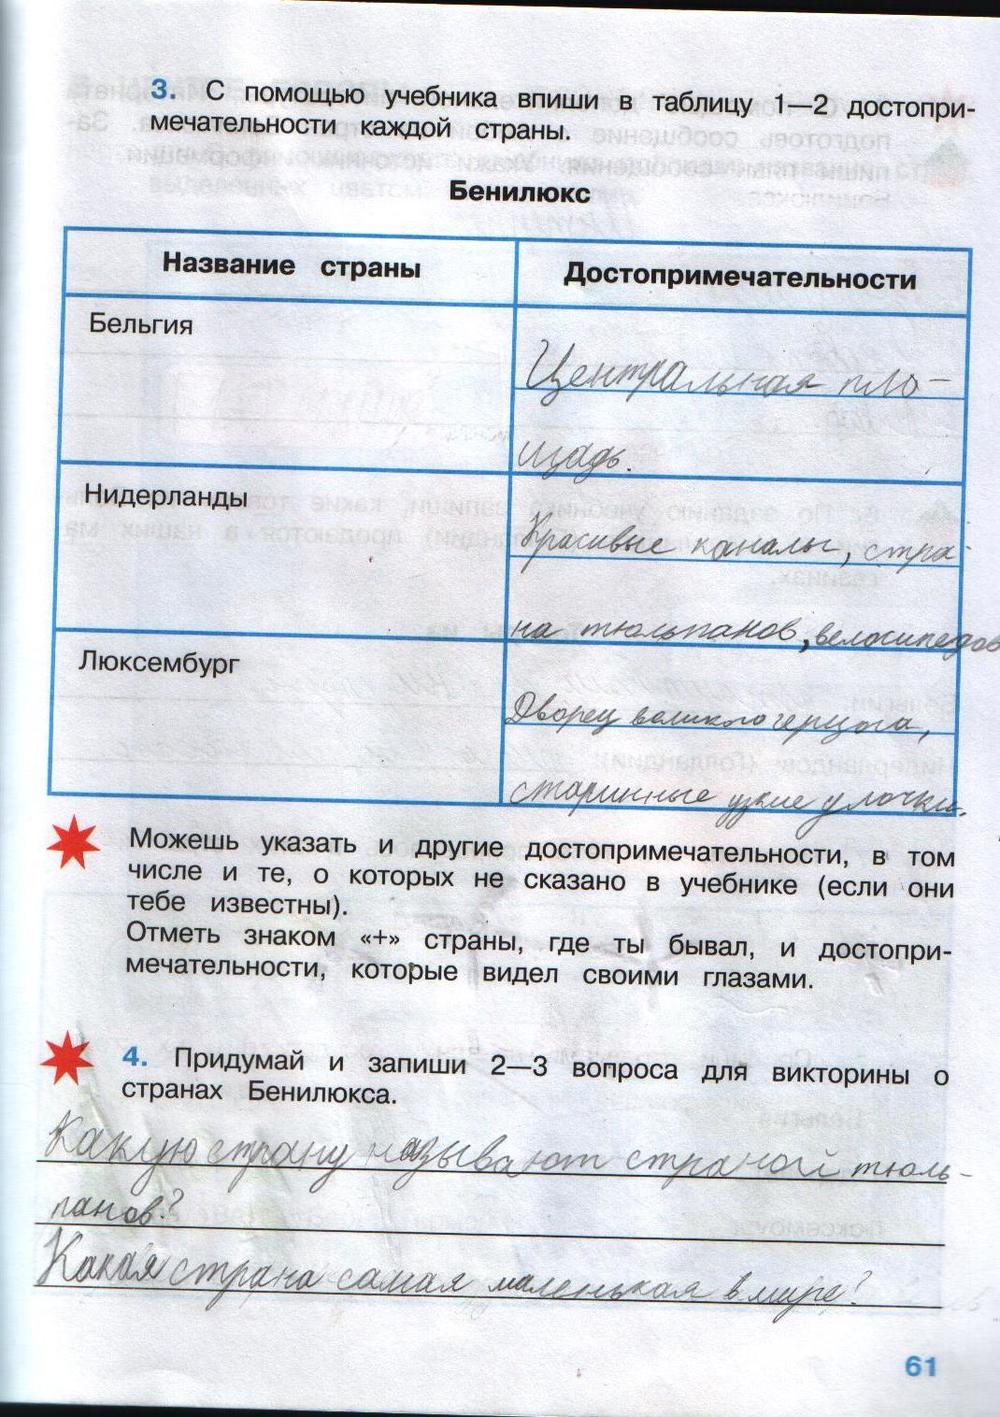 3. С помощью учебника впиши в таблицу 1—2 достопри-
мечательности каждой страны.
Бенилюкс
Название страны
Достопримечательности
Бельгия
Центральная пло-
щадь.
Нидерланды
Красивые каналы, стра-
на тюльпанов, велосипедов
Люксембург
Дворец великого герцога,
старинные узкие улочки.
Можешь указать и другие достопримечательности, в том
числе и те, о которых не сказано в учебнике (если они
тебе известны).
Отметь знаком «+» страны, где ты бывал, и достопри-
мечательности, которые видел своими глазами.
4. Придумай и запиши 2—3 вопроса для викторины о
странах Бенилюкса.
Какую страну называют страной тюль-
панов?
Какая страна самая маленькая в мире?
61